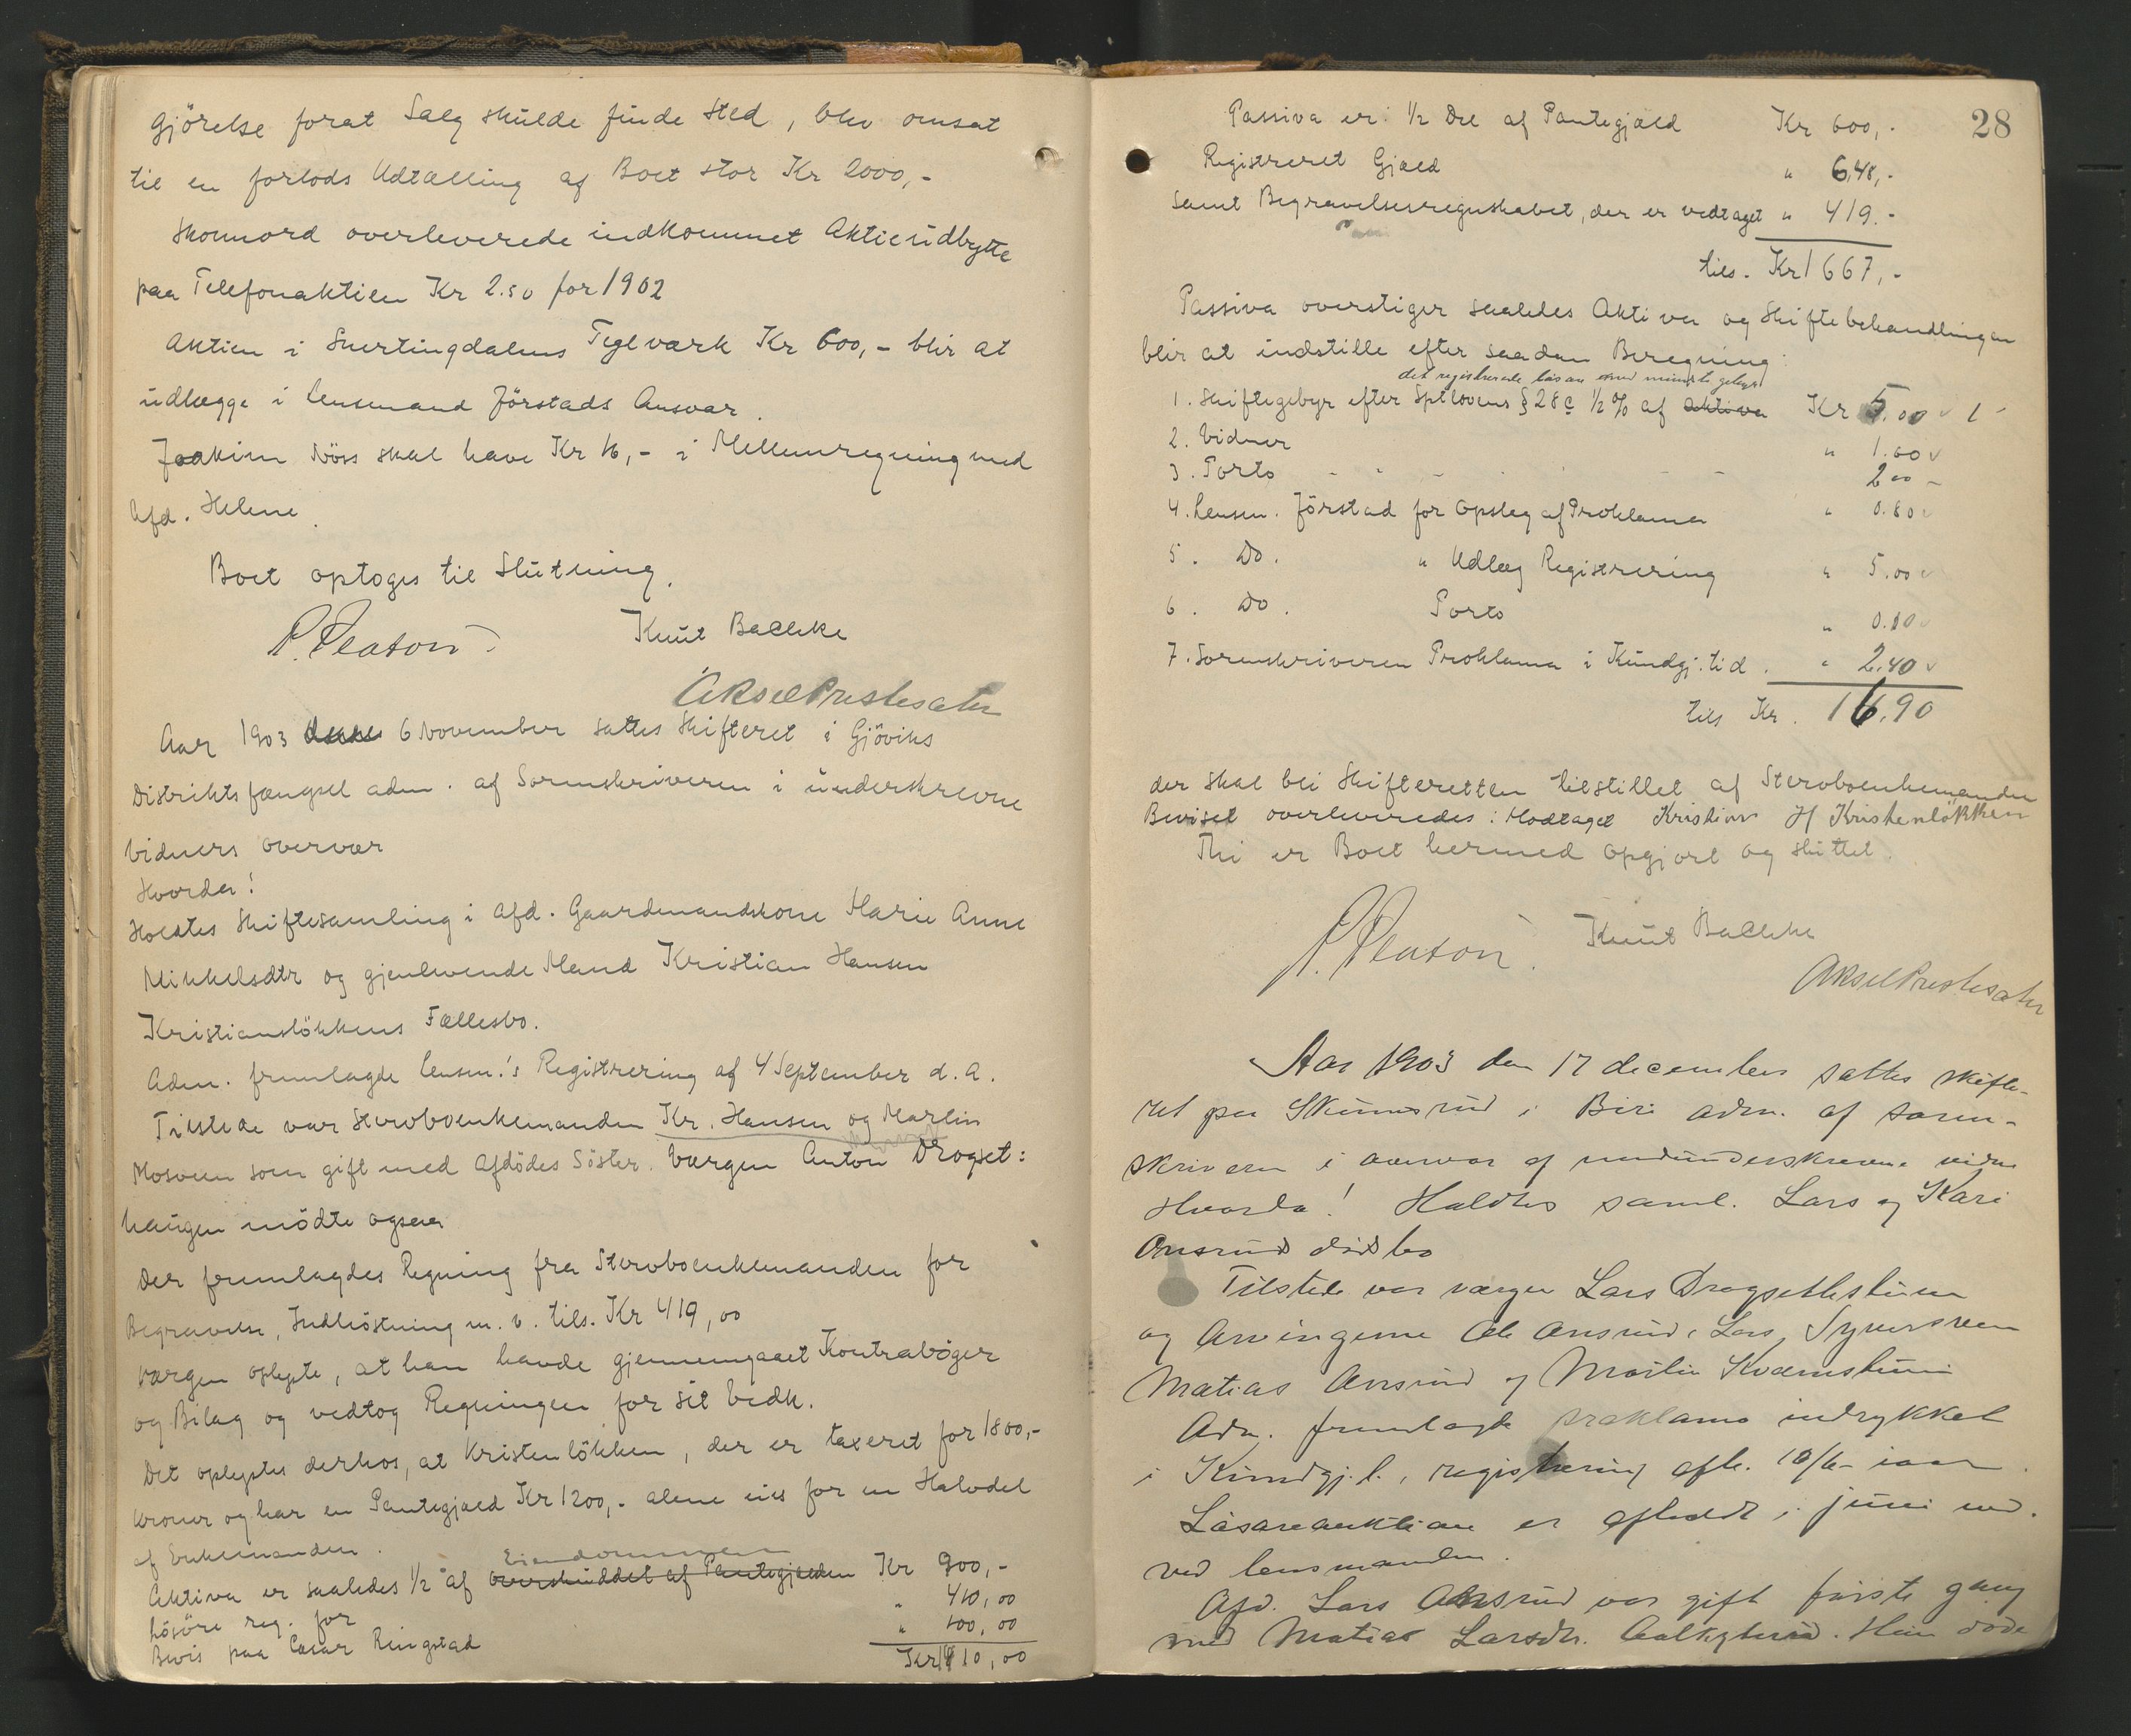 gjörelse forat Salg skulde finde Sted, blev omsat
til en forlods Udtælling af Boet stor Kr 2000,-
overleverede indkommet Aktieudbytte
paa Telefonaktien Kr 2.50 for 1902
Aktien i Snertingdalens Teglværk Kr 600,- blir at
udlægge i Lensmand Förstads Ansvar.
Joakim Nöss skal have Kr 16,- i Mellemregning med
Afd. Helene.
Boet optoges til Slutning.
P. Platou Knut Bælkke
Aksel Prestesæter
Aar 1903 6 November sattes Skifteret i Gjöviks
Distriktsfængsel adm. af Sorenskriveren i underskrevne
Vidners overvær
Hvorda!
Holdtes Skiftesamling i afd. Gaardmandskone Marie Anne
Mikkelsdtr og gjenlevende Mand Kristian Hansen
Kristianslökkens Fællesbo.
Adm. fremlagde Lensm.'s Registrering af 4 September d. A.
Tilstede var Stervboenkemanden Kr. Hansen og Martin
Mosveen som gift med afdödes Söster. Værgen Anton Drogset:
haugen mödte ogsaa
Der fremlagdes Regning fra Stervboenkemanden for
Begravelse, Indhöstning m. v. tils. Kr 419,00
Værgen oplyste, at han havde gjennemgaaet Kontraböger
og Bilag og vedtog Regningen for sit Vedk.
Det oplystes derhos, at Kristenlökken, der er taxeret for 1800,-
Kroner og har en Pantegjæld Kr 1200,- alene eies for en Halvdel
af Enkemanden.
Eiendommen
Aktiva er saaledes 1/2 af Overskuddet af Pantegjælden Kr 900,-
Lösöre reg. for " 410,00
Bevis paa Cæsar Ringstad " 100,00
Kr 1410,00
28
Passiva er: 1/2 Del af Pantegjæld Kr 600,-
Registreret Gjæld " 648,-
samt Begravelsesregnskabet, der er vedtaget " 419.-
tils. Kr 1667,-
Passiva overstiger saaledes Aktiva og Skiftebehandlingen
blir at indstille efter saadan Beregning:
det registrerede lösöre med mindste gebyr
1. Skiftegebyr efter Sptlovens § 28 c 1/2 % af Aktiva Kr 5.00
2. Vidner " 1.60
3. Porto 2 00 -
4. Lensm. Förstad for Opslag af Proklama " 0.80
5. Do. " Udlæg Registrering " 5.00
6. Do. Porto " 0.10
7. Sorenskriveren Proklama i Kundgj. tid. " 2.40
tils Kr. 16.90
der skal bli Skifteretten tilstillet af Stervboenkemanden
Beviset overleveredes: Modtaget Kristian H Kristenlökken
Thi er Boet hermed opgjort og sluttet.
P. Platou. Knut Bælkke
Aksel Prestesæter
Aar 1903 den 17 december sattes skifte-
ret paa Skumsrud i Biri adm. af soren-
skriveren i overvær af nedunderskrevne vidner
Hvorda! Holdtes saml. Lars og Kari
Onsrud dödsbo
Tilstede var værgen Lars Drogsethstuen
og Arvingerne Ole Onsrud, Lars Syversveen
Matias Onsrud og Martin Kværnstuen
Adm. fremlagde proklama indrykket
i Kundgj. t., registrering afh. 10/6- iaar.
Lösöreauktion er afholdt i juni md.
ved lensmanden.
Afd. Lars Onsrud var gift förste gang
med Larsdtr. Hun döde